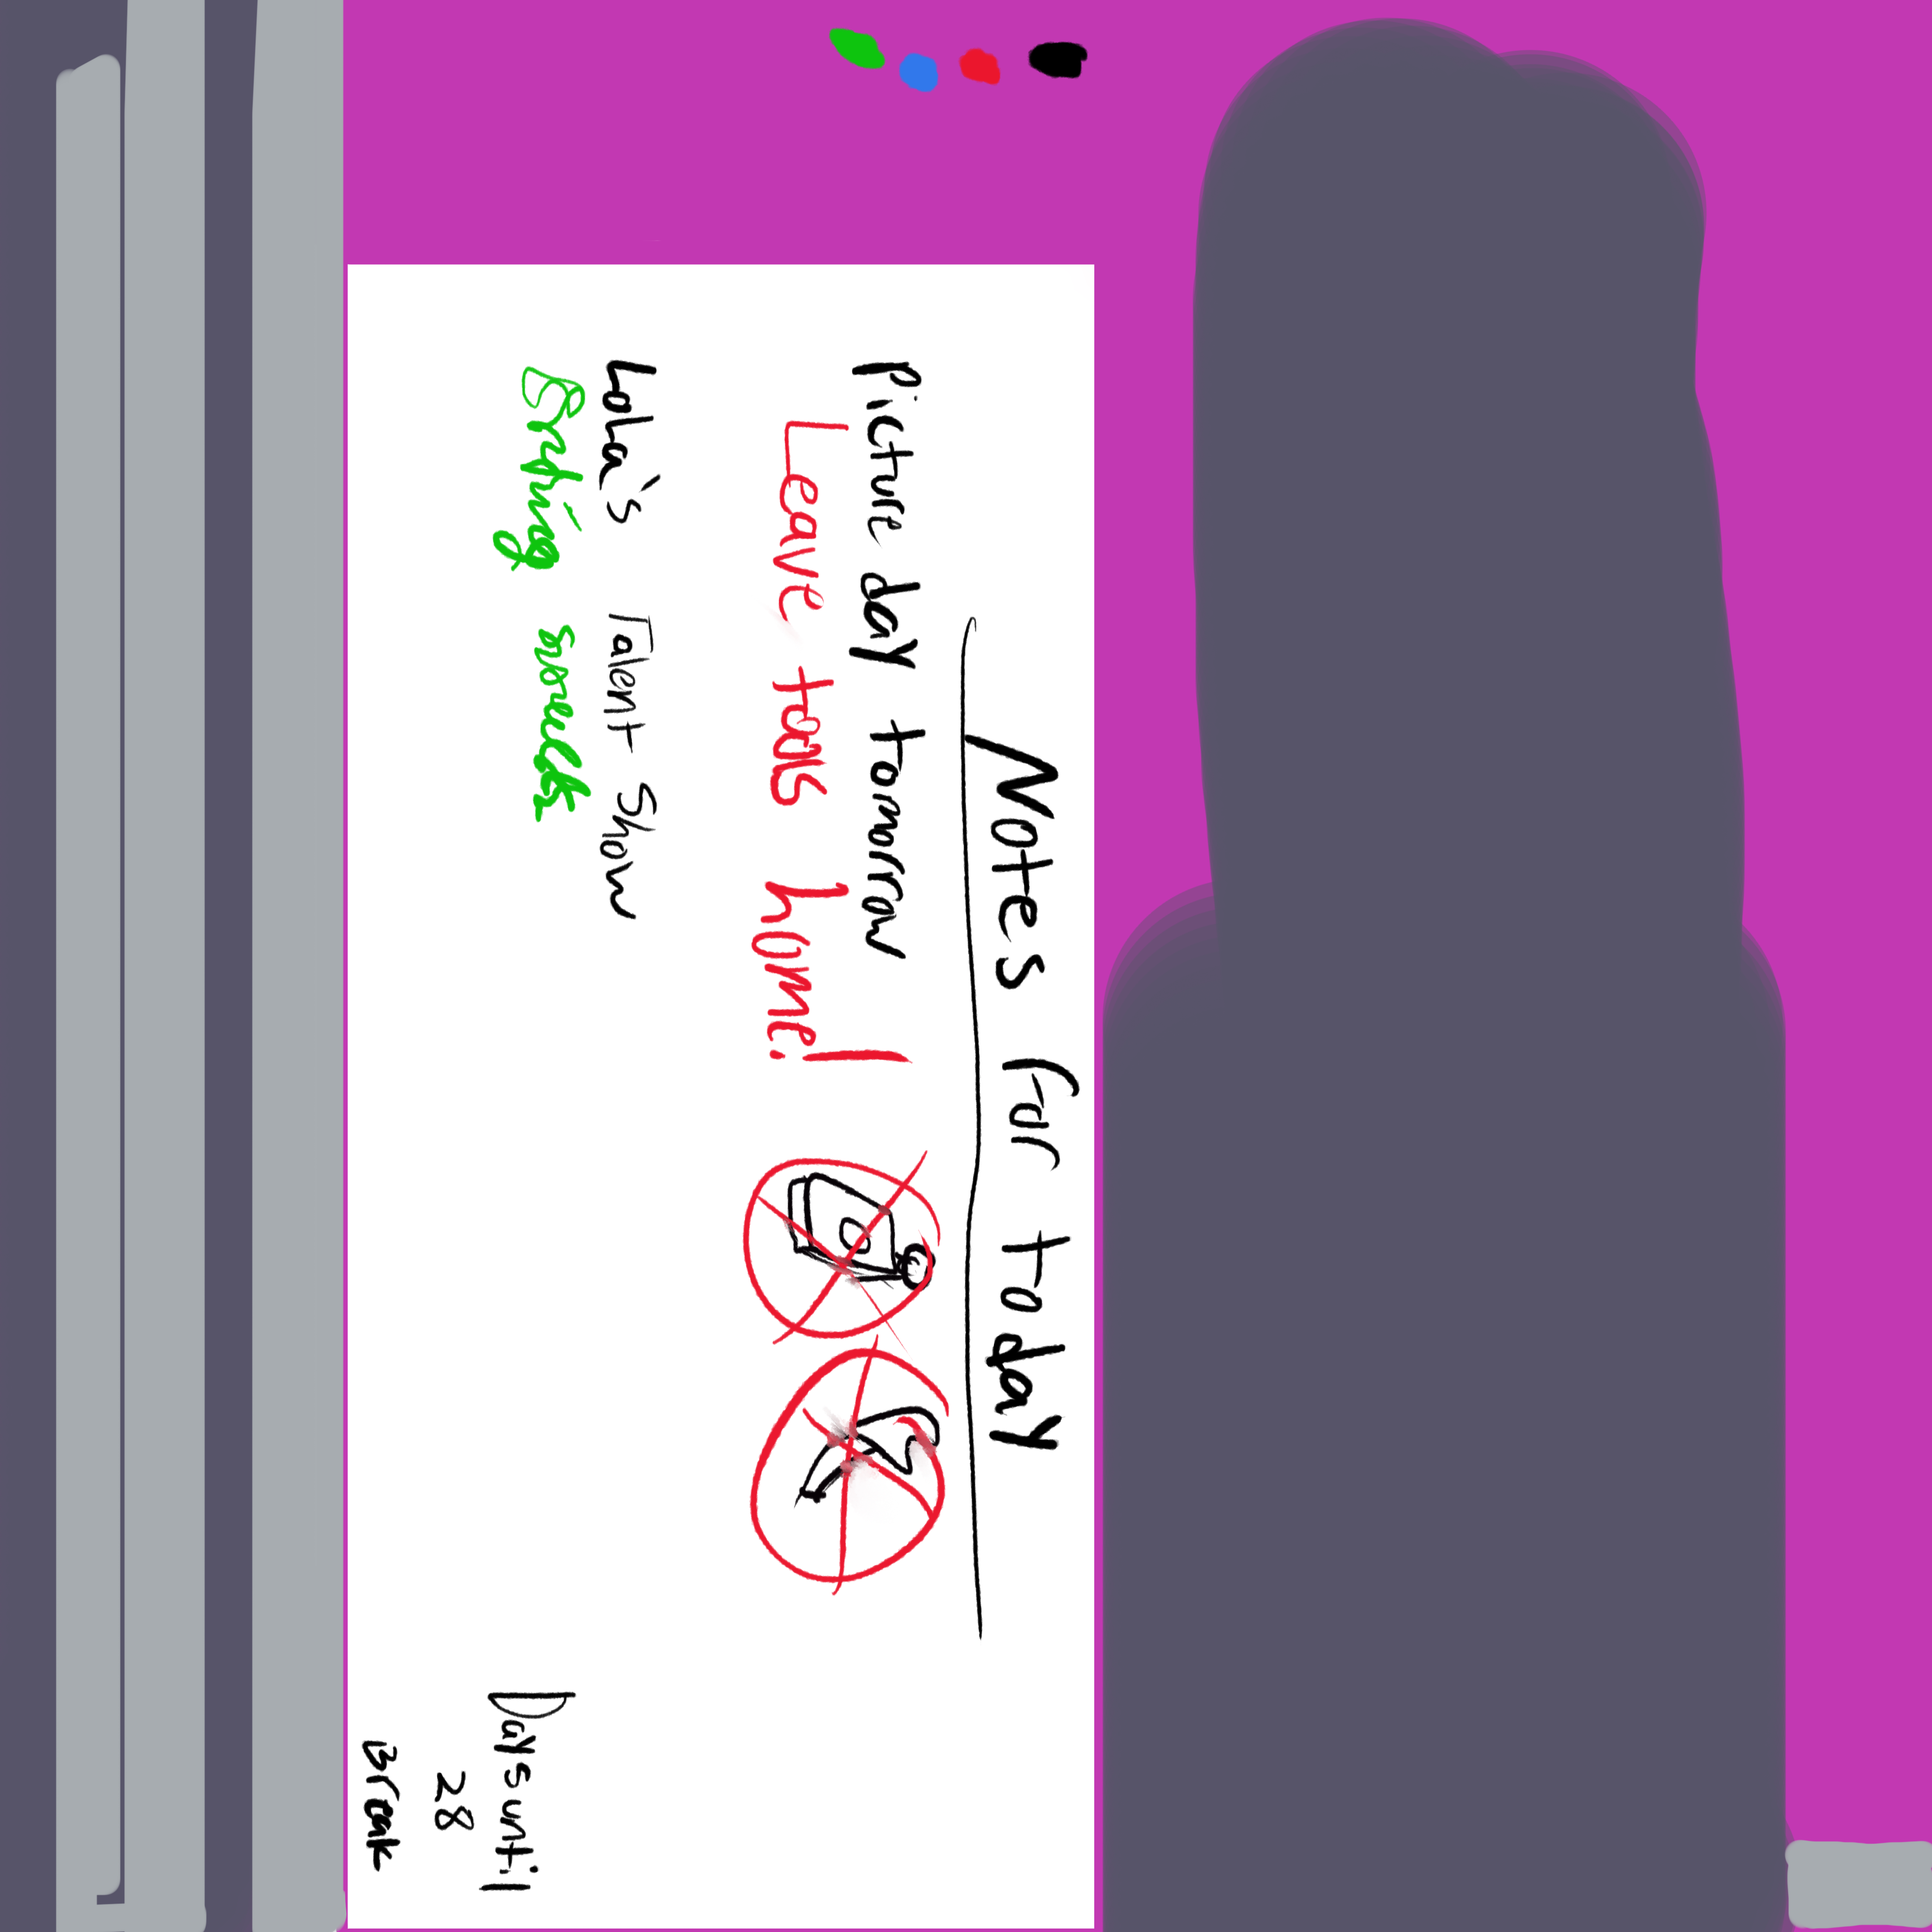 Notes for today
Picture day tomorrow
Leave tools home!
Lola's Talent Show
Bring snacks
Days until
28
Break